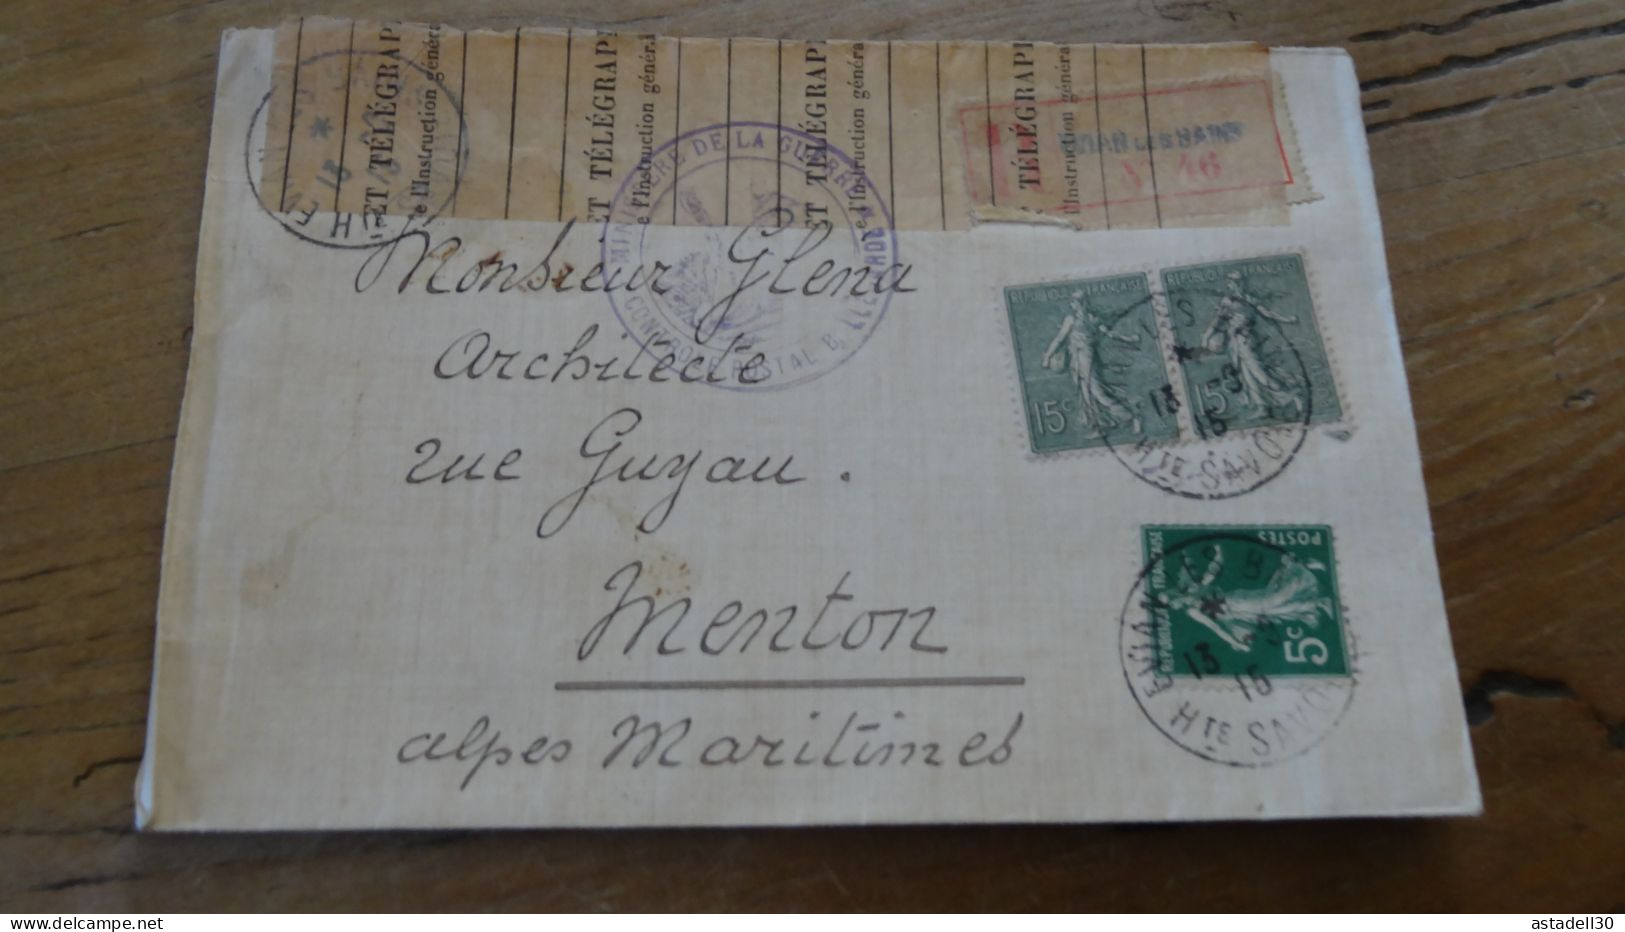 ET TÉLÉGRAPH
e l'Instruction généra
ET TÉLÉGRAPH
e l'Instruction généra
ET TÉLÉGRAPH
e l'Instruction généra
ET TÉLÉGRAPH
l'Instruction généra
EVIAN LES BAINS
46
MINISTÈRE DE LA GUERRE
CONTROLE POSTAL B
Monsieur Glena
Architecte
rue Guyau.
Menton
Alpes Maritimes
REPUBLIQUE FRANÇAISE
15c
REPUBLIQUE FRANÇAISE
15c
13 15-3
15
HTE SAVOIE
REPUBLIQUE FRANÇAISE
POSTES
5c
EVIAN LES B
*
13
15
HTE SAVO
astadell30